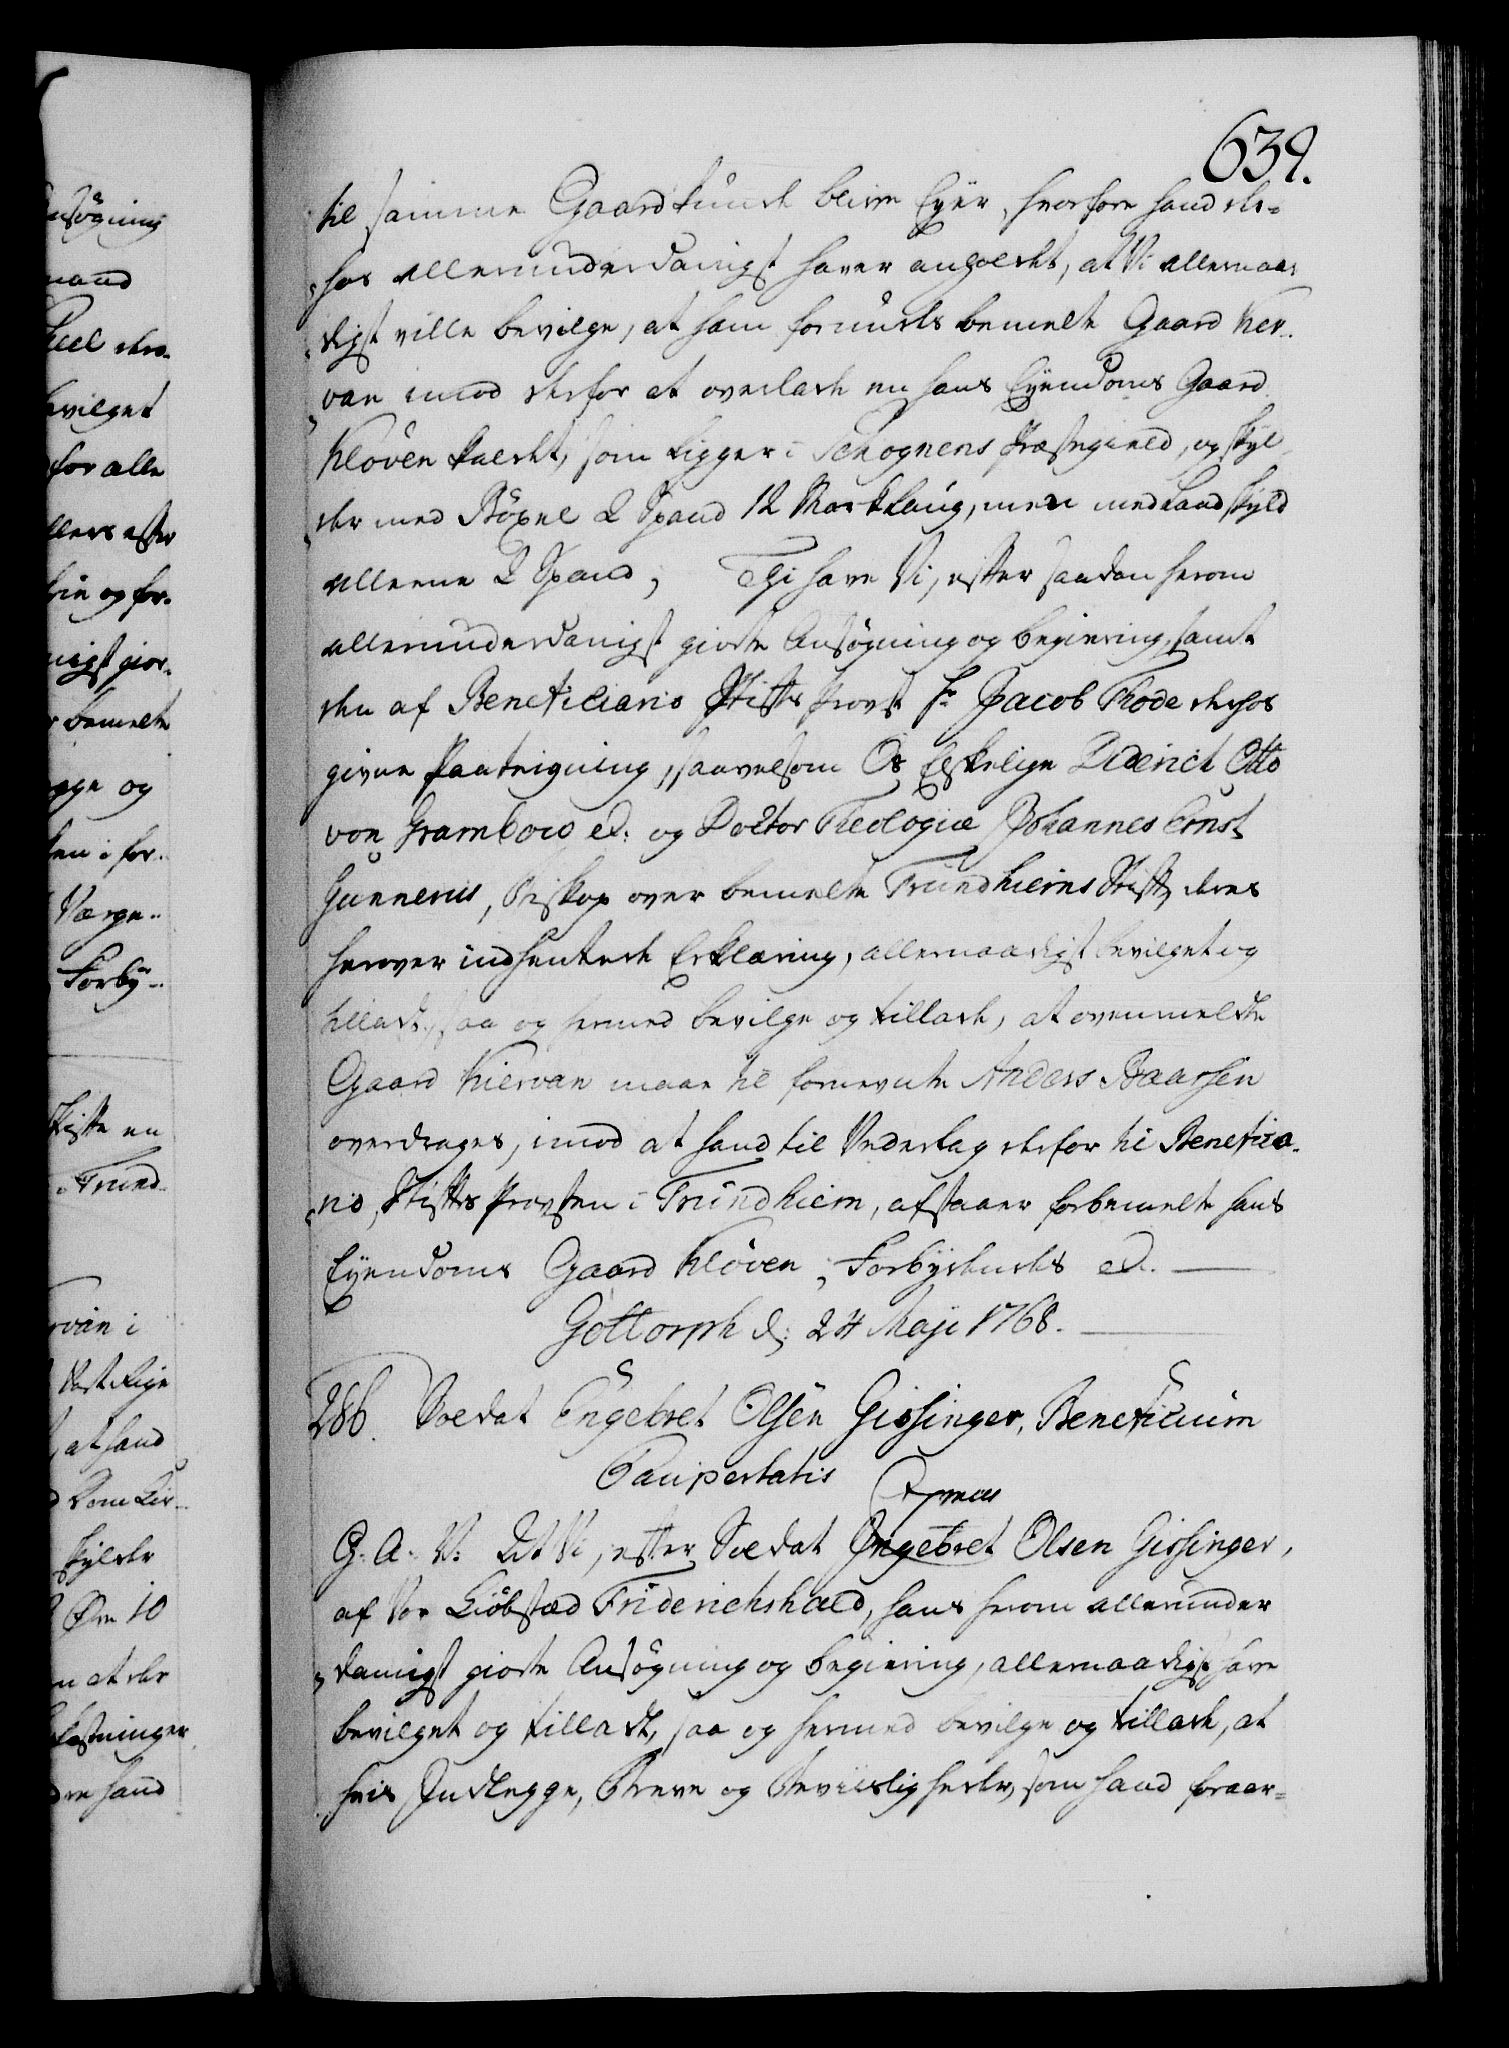 639.
til samme Gaard kunde blive Eyer, hvorfore hand der-
hos allerunderdanigst haver anholdet, at Vi allernaa-
digst ville bevilge, at ham formeldte bemelte Gaard Ker-
van imod derfor at overlade en hans Eyendoms Gaard
Kløven kaldet, som ligger i Schognens Præstegield, og skyl-
der med Böxel 2 Spand 12 Marklaug, men med Landskyld
alleene 2 Spand; Thi have Vi, efter saadan herom
allerunderdanigst giorte Ansögning og begiering, samt
den af Beneficiario Stifts Provst Hr Jacob Rode derhos
givne Paategning, saavelsom Os Elskelige Diderich Otto
von Grambow etc. og Doctor Theologiæ Johannes Ernst
Gunnerus, Biskop over bemelte Trundhiems Stift, deres
herover indhentede Erklæring, allernaadigst bevilget og
tilladt, saa og hermed bevilge og tillade, at ovenmeldte
Gaard Kiervan maae til fornevnte Anders Baarsen
overdrages, imod at hand til Vederlag derfor til Beneficia-
rio, Stifts Provsten i Trundhiem, afstaaer forbemelte hans
Eyendoms Gaard Kløven, Forbydendes etc.
Gottorph d: 24 Maji 1768.
286. Soldat Engebret Olsen Gissinger, Beneficium
Paupertatis
Express
G. A. V. At Vi, efter Soldat Engebret Olsen Gissinger,
af Vor Kiöbstæd Friderichshald, hans herom allerunder-
danigst giorte Ansögning og begiering, allernaadigst have
bevilget og tilladt, saa og hermed bevilge og tillade, at
hvis Indlegge, Breve og Beviisligheder, som hand foraar-